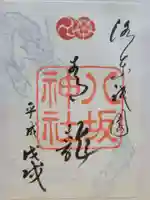 青龍
八坂
神社
平成戊戌